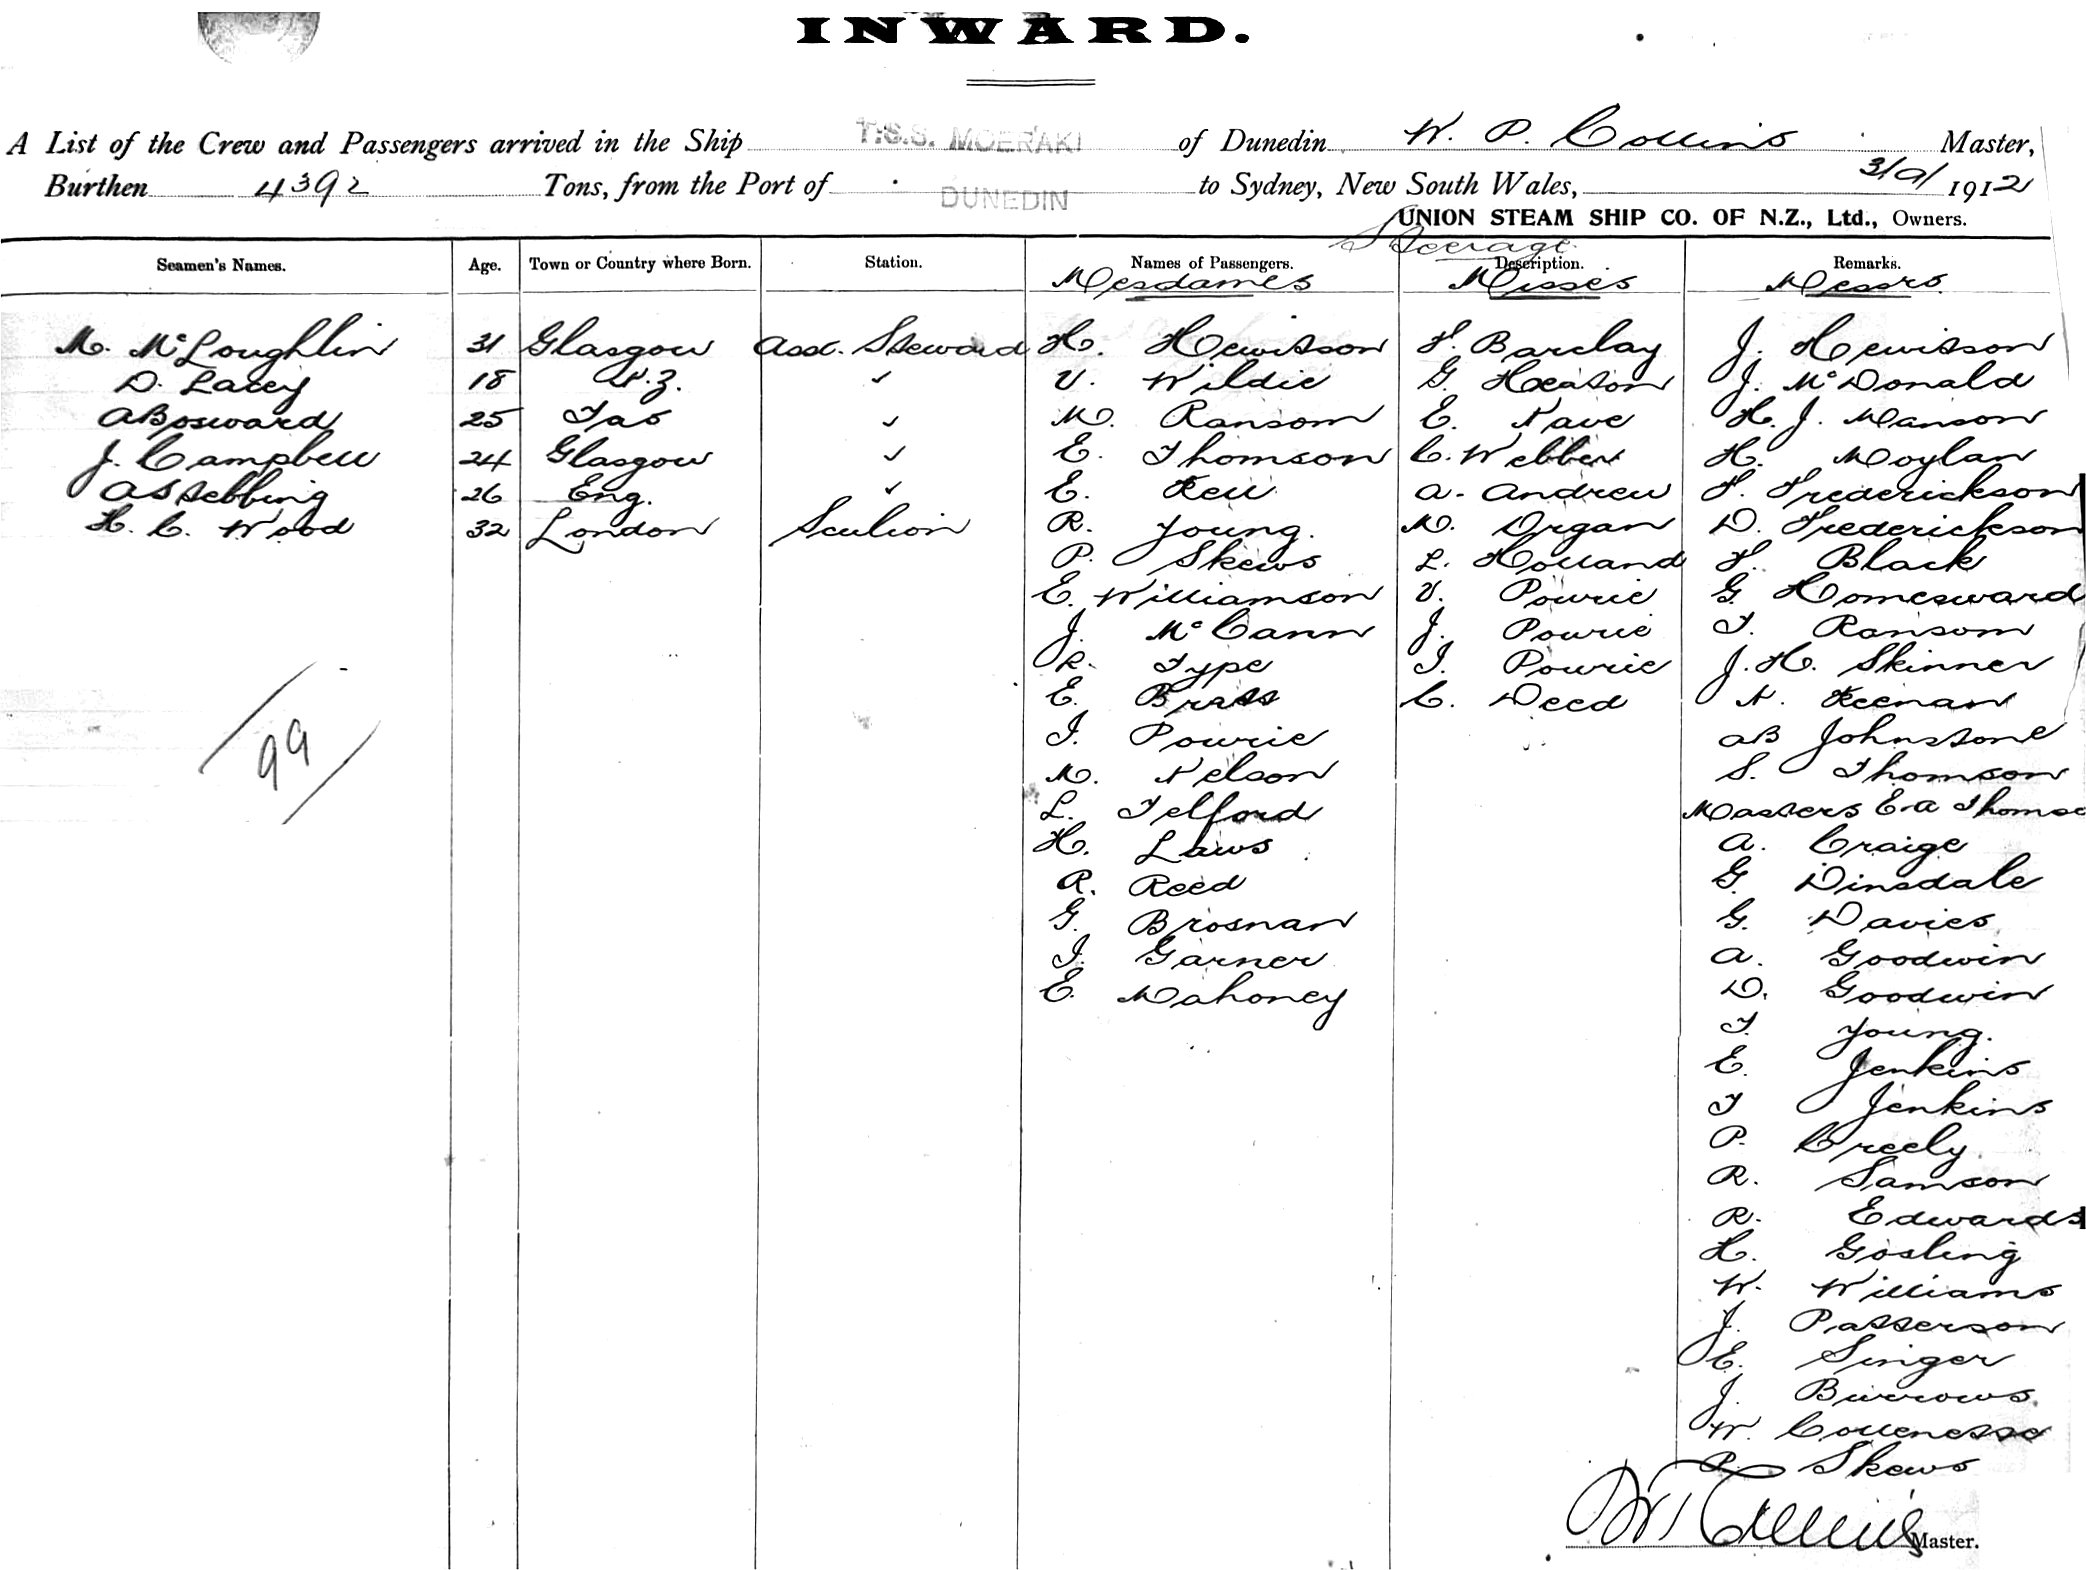 INWARD.
A List of the Crew and Passengers arrived in the Ship T.S.S. MOERAKI of Dunedin W. P. Collins Master,
Burthen 4392 Tons, from the Port of DUNEDIN to Sydney, New South Wales, 3/9/1912
UNION STEAM SHIP CO. OF N.Z., Ltd., Owners.
Steerage
Seamen's Names. Age. Town or Country where Born. Station. Names of Passengers. Description. Remarks.
Mesdames Misses Messrs.
M. McLoughlin 31 Glasgow Asst. Steward H. Hewitson F. Barclay J. Hewitson
D. Lacey 18 N.Z. ✓ V. Wildie G. Heaton J. McDonald
A Bosward 25 Tas ✓ M. Ransom E. Nave H. J. Manson
J. Campbell 24 Glasgow ✓ E. Thomson C. Webber H. Moylan
A Stebbing 26 Eng. ✓ E. Kell A. Andrew F. Frederickson
H. C. Wood 32 London Sculion R. Young. M. Organ D. Frederickson
P. Skews L. Holland F. Black
E. Williamson V. Powrie G. Homesward
J. McCann J. Powrie T. Ransom
R. Type I. Powrie J. H. Skinner
E. Brass C. Deed N. Keenan
I. Powrie AB Johnstone
M. Nelson S. Thomson
L. Telford Masters E. A Thomso
H. Laws A. Craige
R. Reed G. Dinsdale
G. Brosnan G. Davies
J. Garner A. Goodwin
E. Mahoney D. Goodwin
T. Young.
E. Jenkins
T Jenkins
P. Creely
R. Samson
R. Edwards
H. Gosling
W. Williams
J. Patterson
E. Singer
J. Burrows.
W.
P. Skews
99
W P Collins Master.